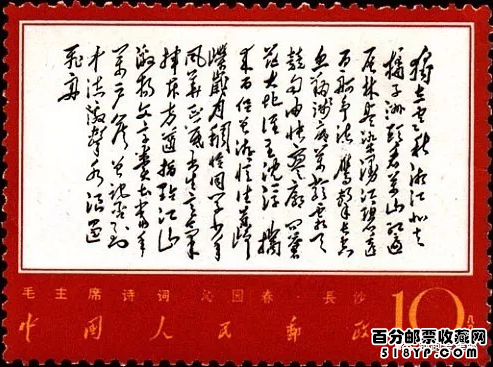 独立寒秋湘江北去
橘子洲头看万山红遍
层林尽染漫江碧透
百舸争流鹰击长空
鱼翔浅底万类霜天
竞自由怅寥廓问苍
茫大地谁主沉浮 携
来百侣曾游忆往昔峥
嵘岁月稠恰同学少年
风华正茂书生意气
挥斥方遒指点江山
激扬文字粪土当年
万户侯曾记否到
中流击水浪遏
飞舟
毛主席诗词 沁园春·長沙
中国人民郵政 10
百分邮票收藏网
518YP.com